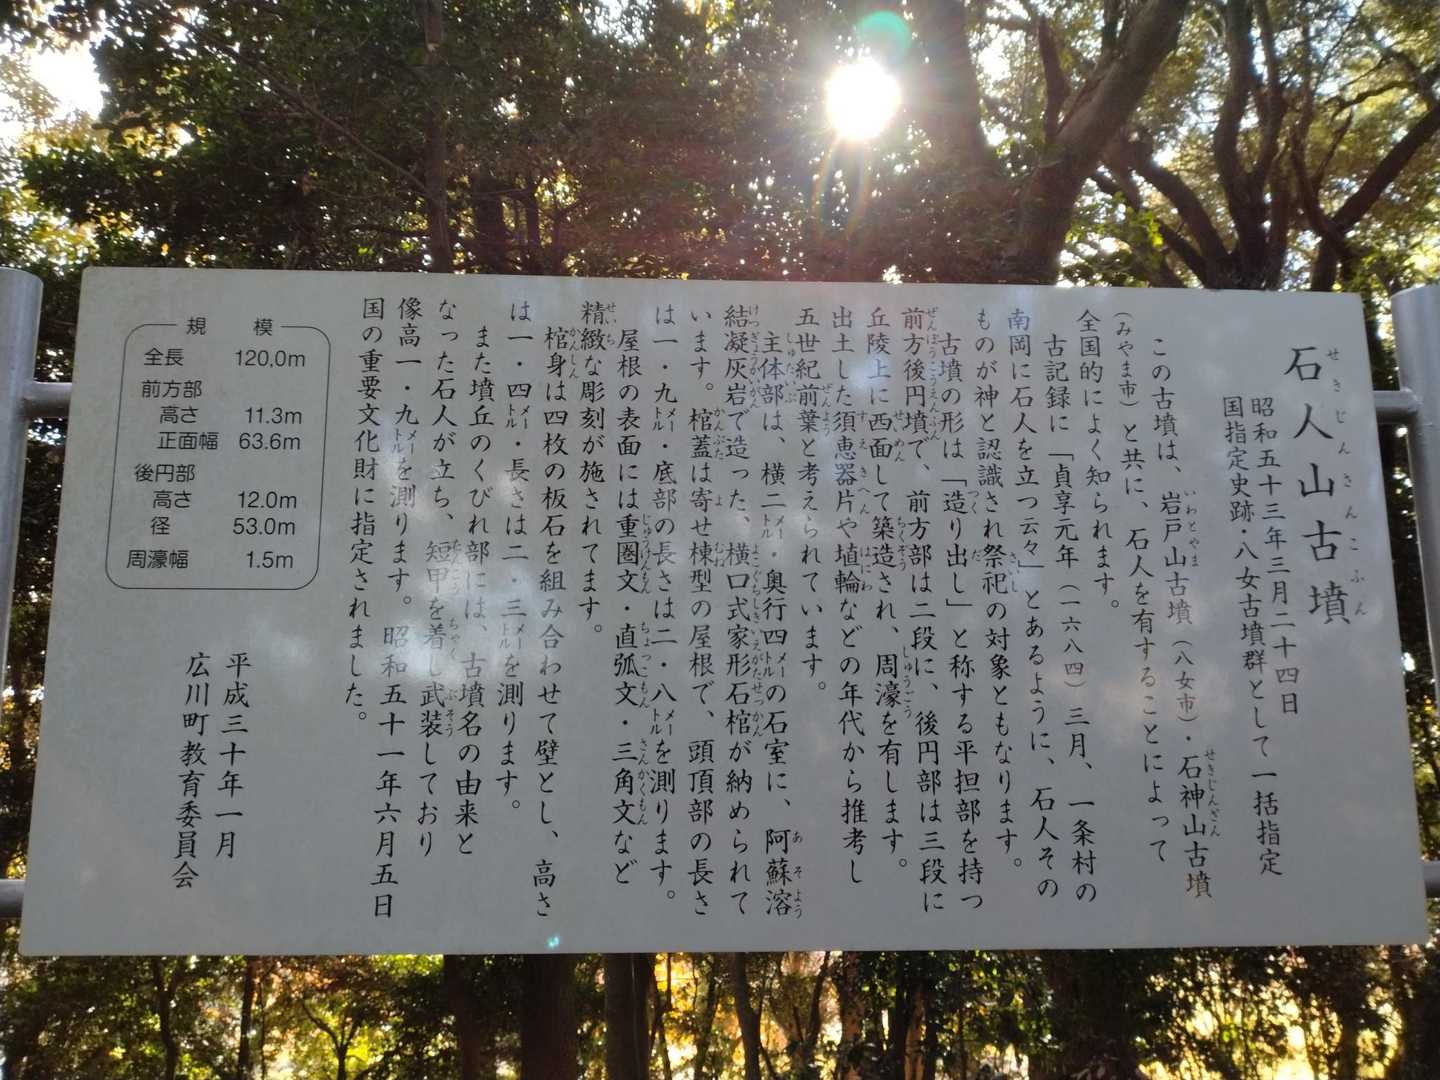 石人山古墳
せきじんさんこふん
昭和五十三年三月二十四日
国指定史跡・八女古墳群として一括指定
この古墳は、岩戸山古墳（八女市）・石神山古墳
（みやま市）と共に、石人を有することによって
全国的によく知られます。
古記録に「貞享元年（一六八四）三月、一条村の
南岡に石人を立つ云々」とあるように、石人その
ものが神と認識され祭祀の対象ともなります。
古墳の形は「造り出し」と称する平担部を持つ
前方後円墳で、前方部は二段に、後円部は三段に
丘陵上に西面して築造され、周濠を有します。
出土した須恵器片や埴輪などの年代から推考し
五世紀前葉と考えられています。
主体部は、横二メートル・奥行四メートルの石室に、阿蘇溶
結凝灰岩で造った、横口式家形石棺が納められて
います。棺蓋は寄せ棟型の屋根で、頭頂部の長さ
は一・九メートル・底部の長さは二・八メートルを測ります。
屋根の表面には重圏文・直弧文・三角文など
精緻な彫刻が施されてます。
棺身は四枚の板石を組み合わせて壁とし、高さ
は一・四メートル・長さは二・三メートルを測ります。
また墳丘のくびれ部には、古墳名の由来と
なった石人が立ち、短甲を着し武装しており
像高一・九メートルを測ります。昭和五十一年六月五日
国の重要文化財に指定されました。
平成三十年一月
広川町教育委員会
規模
全長 120.0m
前方部
高さ 11.3m
正面幅 63.6m
後円部
高さ 12.0m
径 53.0m
周濠幅 1.5m